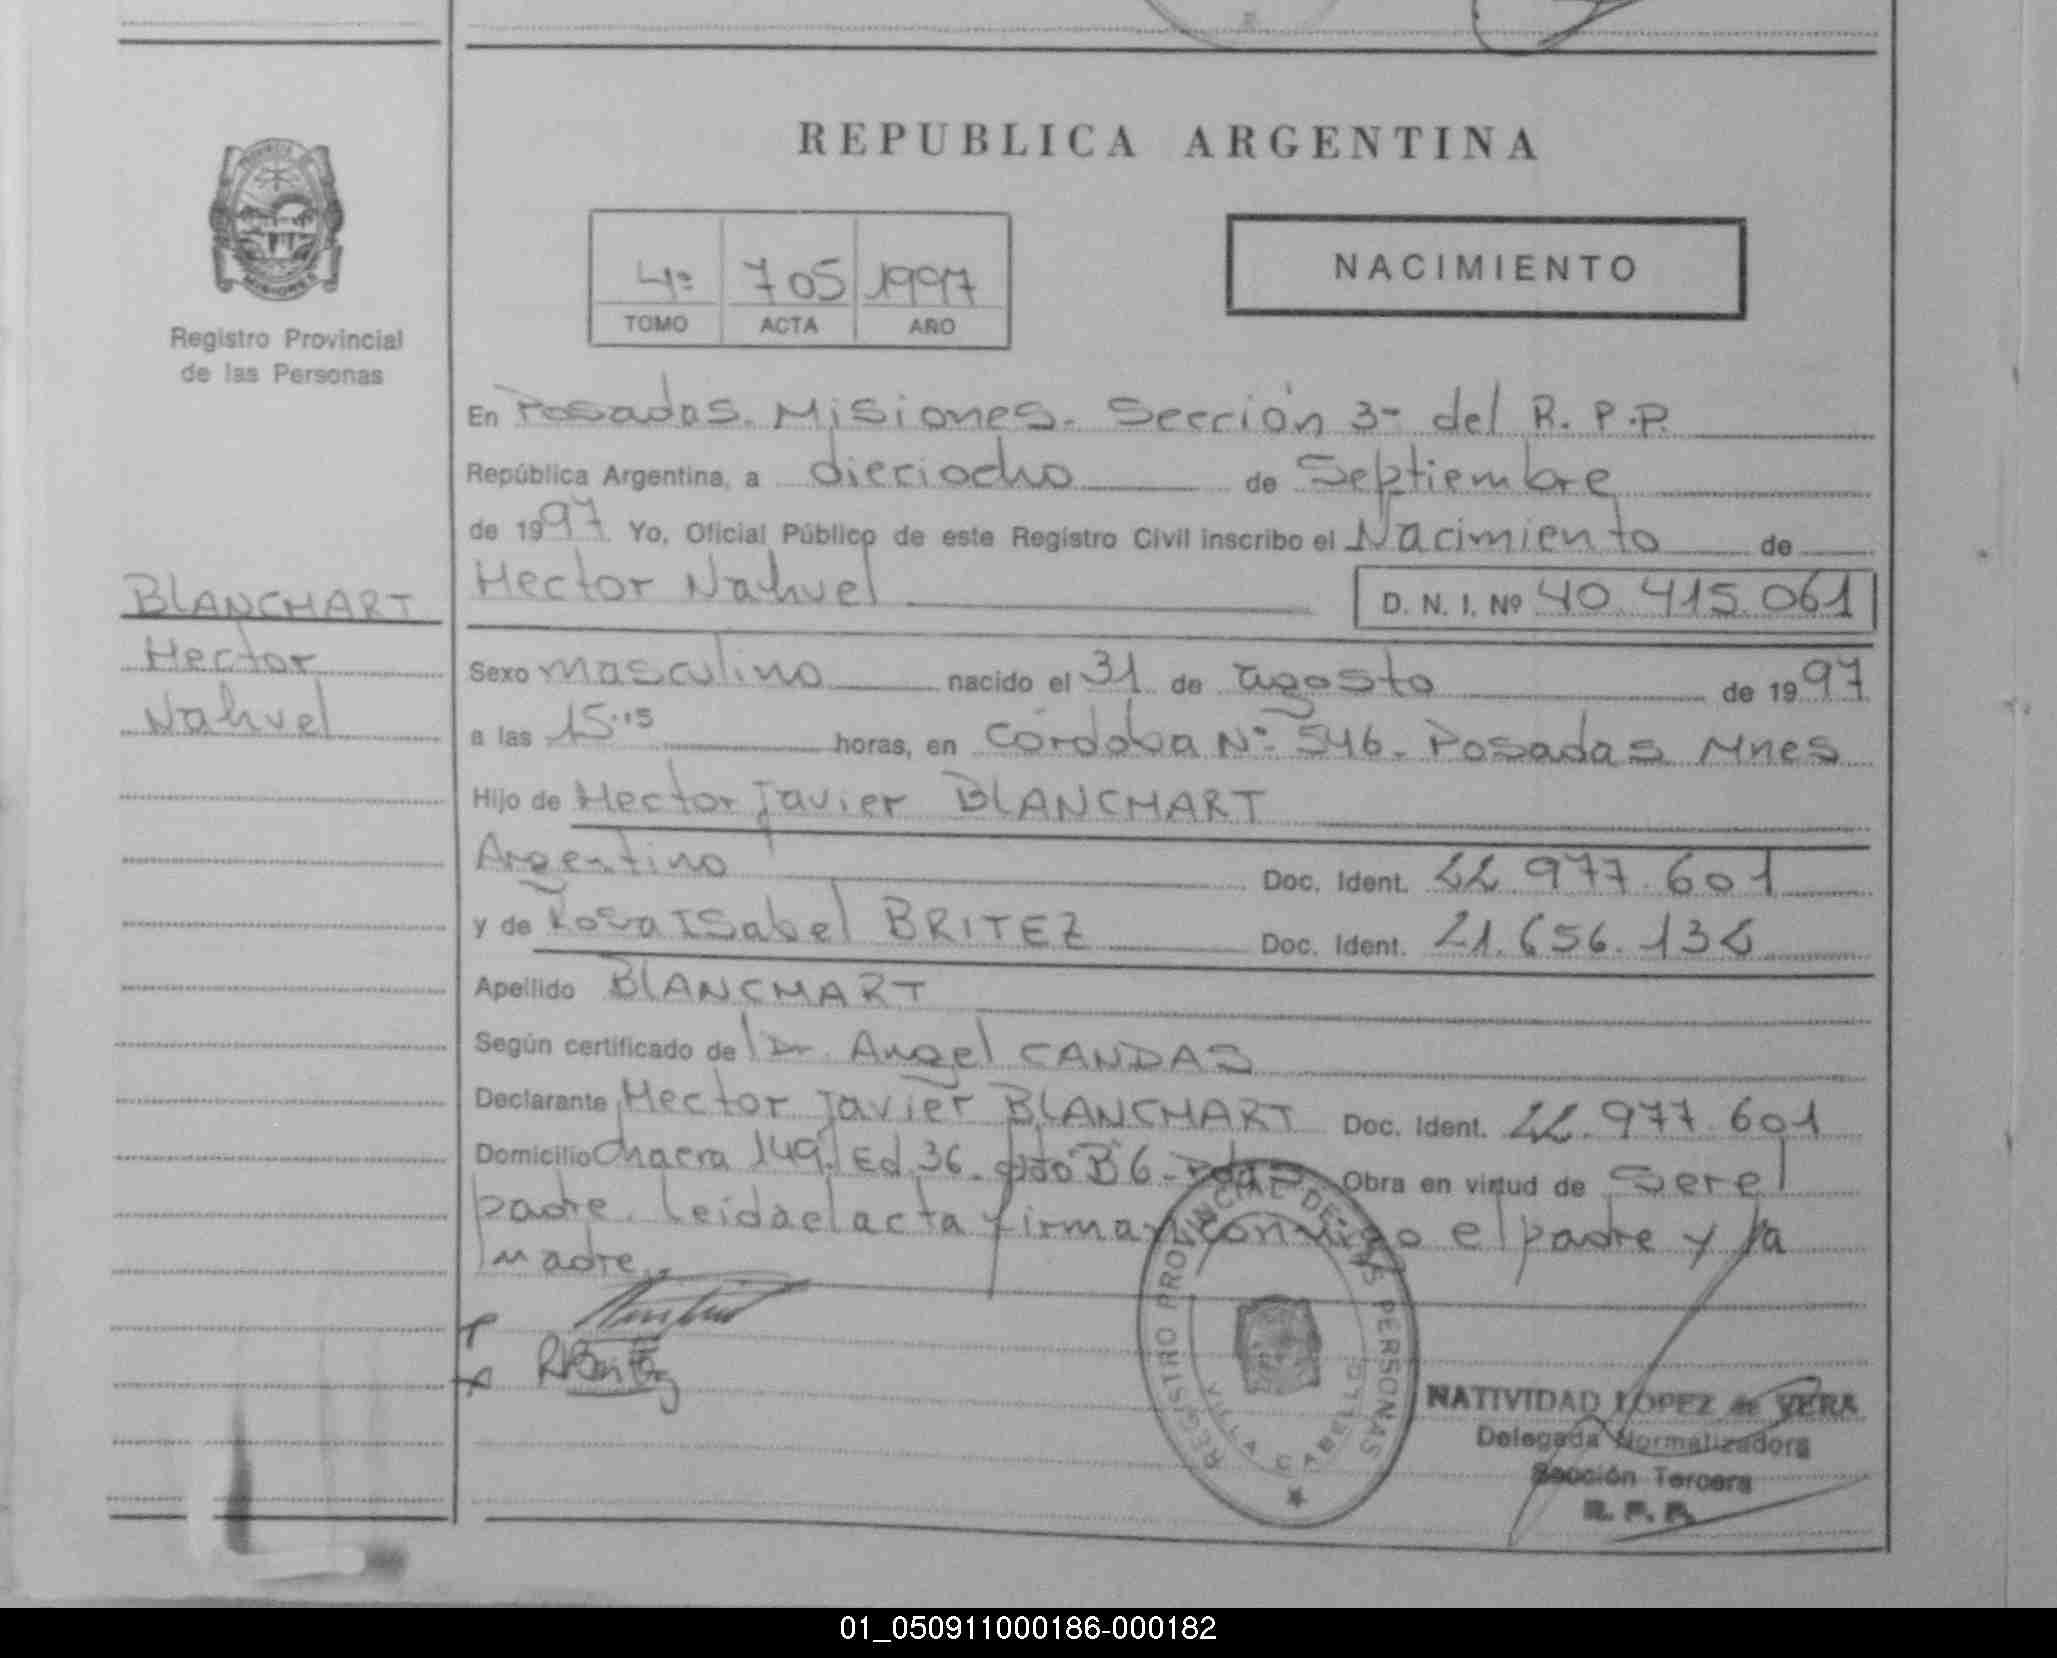 REPUBLICA ARGENTINA
PROVINCIA
MISIONES
Registro Provincial
de las Personas
4º 705 1997
TOMO ACTA AÑO
NACIMIENTO
En Posadas. Misiones. Sección 3ª del R. P. P.
República Argentina, a dieciocho de Septiembre
de 1997 Yo, Oficial Público de este Registro Civil inscribo el Nacimiento de
Hector Nahuel D. N. I. Nº 40.415.061
BLANCHART
Hector
Nahuel
Sexo masculino nacido el 31 de agosto de 1997
a las 15:15 horas, en Córdoba Nº 546. Posadas Mnes
Hijo de Hector Javier BLANCHART
Argentino Doc. Ident. 22.977.601
y de Rosa Isabel BRITEZ Doc. Ident. 21.656.136
Apellido BLANCHART
Según certificado del Dr. Angel CANDAS
Declarante Hector Javier BLANCHART Doc. Ident. 22.977.601
Domicilio Chacra 149. Ed. 36. dto B 6. Pdas Obra en virtud de ser el
padre. Leida el acta firman conmigo el padre y la
madre.
REGISTRO PROVINCIAL DE LAS PERSONAS
VILLA CABELLO
NATIVIDAD LOPEZ de VERA
Delegada Normalizadora
Sección Tercera
R. P. P.
01_050911000186-000182